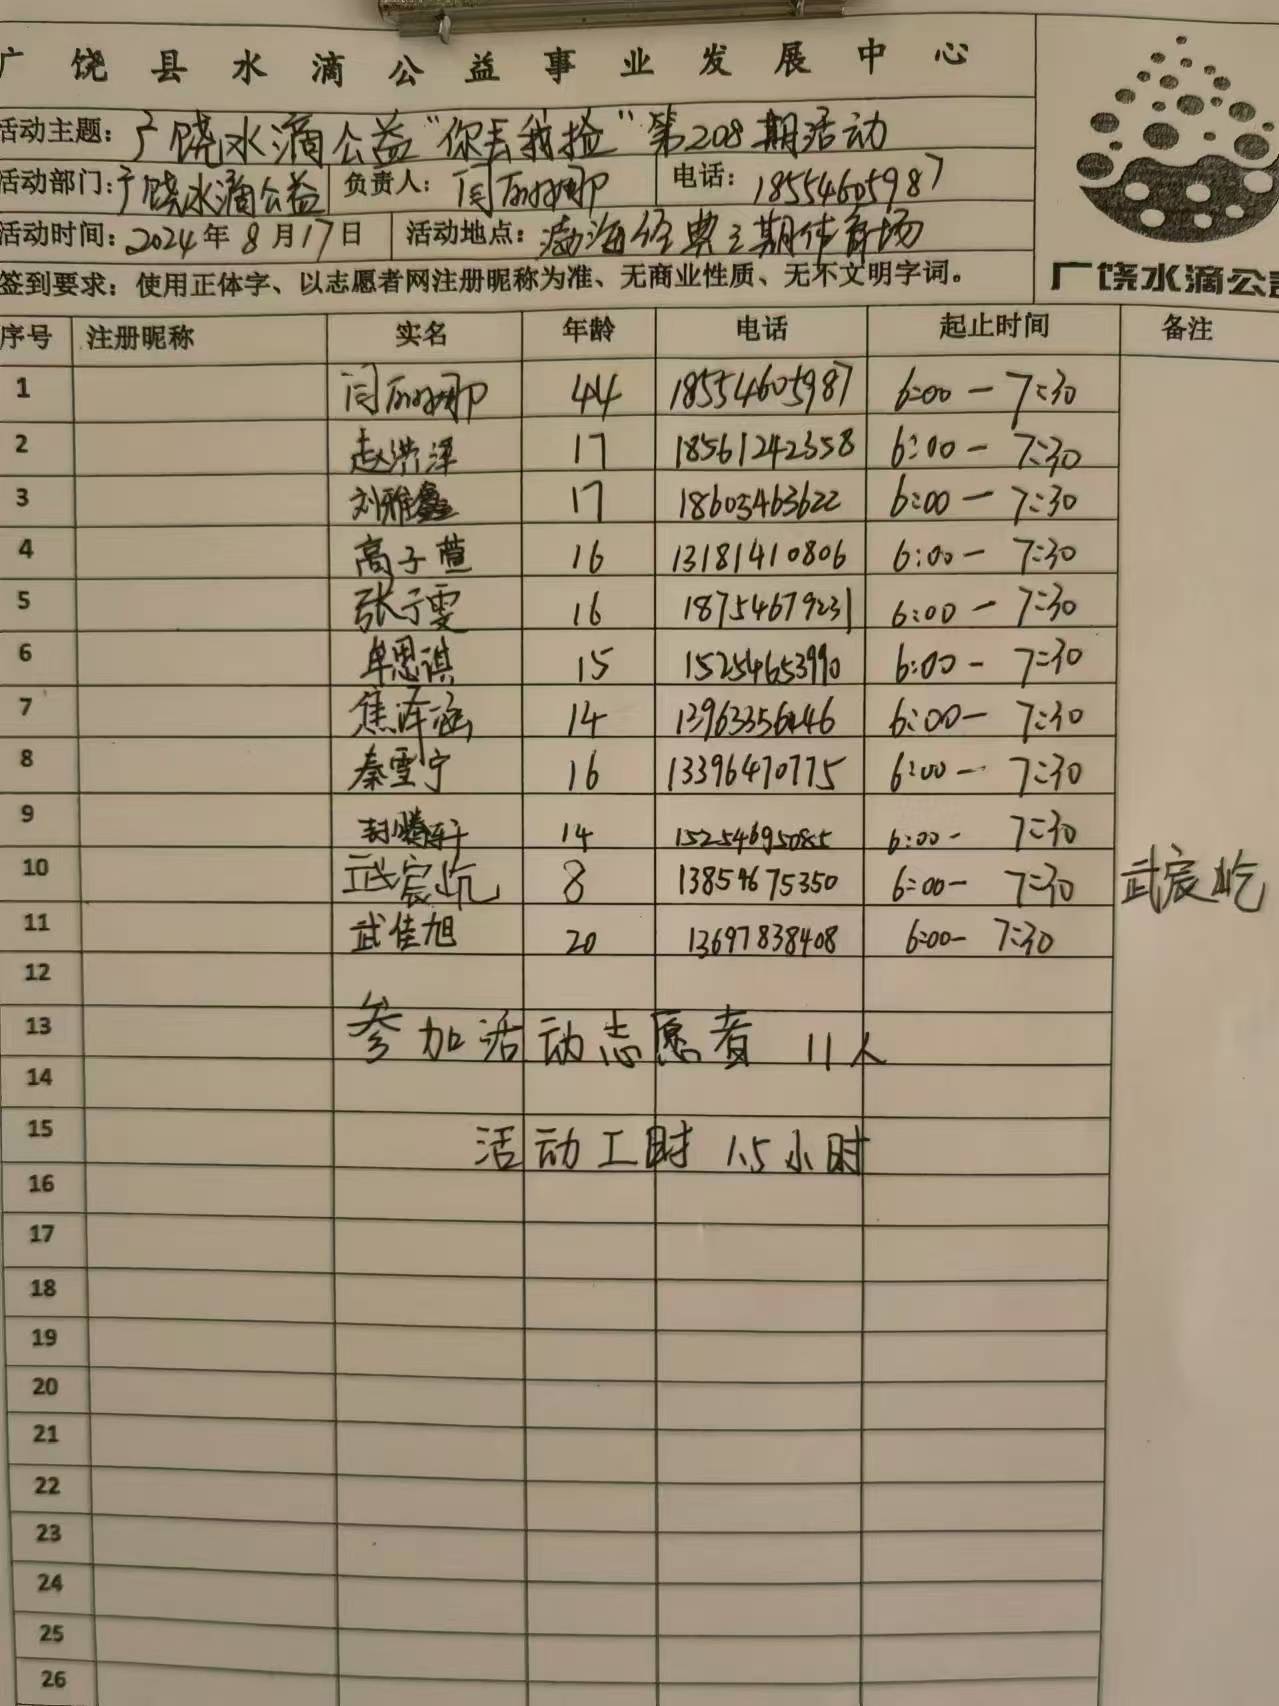 广饶县水滴公益事业发展中心
活动主题：广饶水滴公益“你丢我捡”第208期活动
活动部门：广饶水滴公益 负责人：闫丽娜 电话：18554605987
活动时间：2024年8月17日 活动地点：渤海经典三期体育场
签到要求：使用正体字、以志愿者网注册昵称为准、无商业性质、无不文明字词。
广饶水滴公益
序号 注册昵称 实名 年龄 电话 起止时间 备注
1 闫丽娜 44 18554605987 6:00 - 7:30
2 赵洪泽 17 18561242358 6:00 - 7:30
3 刘雅鑫 17 18603463622 6:00 - 7:30
4 高子萱 16 13181410806 6:00 - 7:30
5 张子雯 16 18754679231 6:00 - 7:30
6 单思淇 15 15254653990 6:00 - 7:30
7 焦泽涵 14 6:00 - 7:30
8 秦雪宁 16 13396470775 6:00 - 7:30
9 封腾轩 14 15254695085 6:00 - 7:30
10 武宸屹 8 13854675350 6:00 - 7:30 武宸屹
11 武佳旭 20 13697838408 6:00 - 7:30
12
13 参加活动志愿者 11人
14
15 活动工时 1.5小时
16
17
18
19
20
21
22
23
24
25
26